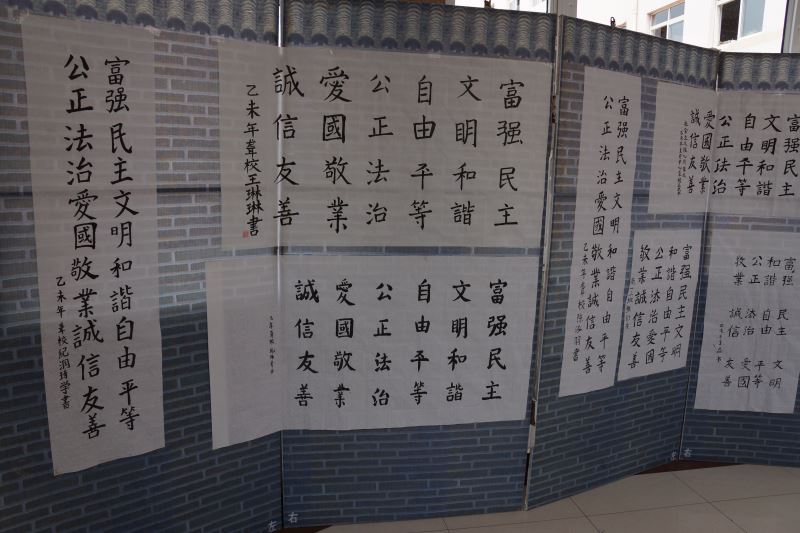 富强民主文明和諧自由平等
公正法治愛國敬業誠信友善
乙未年韋校
富强民主
文明和諧
自由平等
公正法治
愛國敬業
誠信友善
乙未年韋校王琳琳書
富强民主
文明和諧
自由平等
公正法治
愛國敬業
誠信友善
富强民主文明和諧自由平等
公正法治愛國敬業誠信友善
乙未年韋校
富强民主文明
和諧自由平等
公正法治愛國
敬業誠信友善
富强民主
文明和諧
自由平等
公正法治
愛國敬業
誠信友善
富强 民主 文明
和諧 自由 平等
公正 法治 愛國
敬業 誠信 友善
左 右
左 右